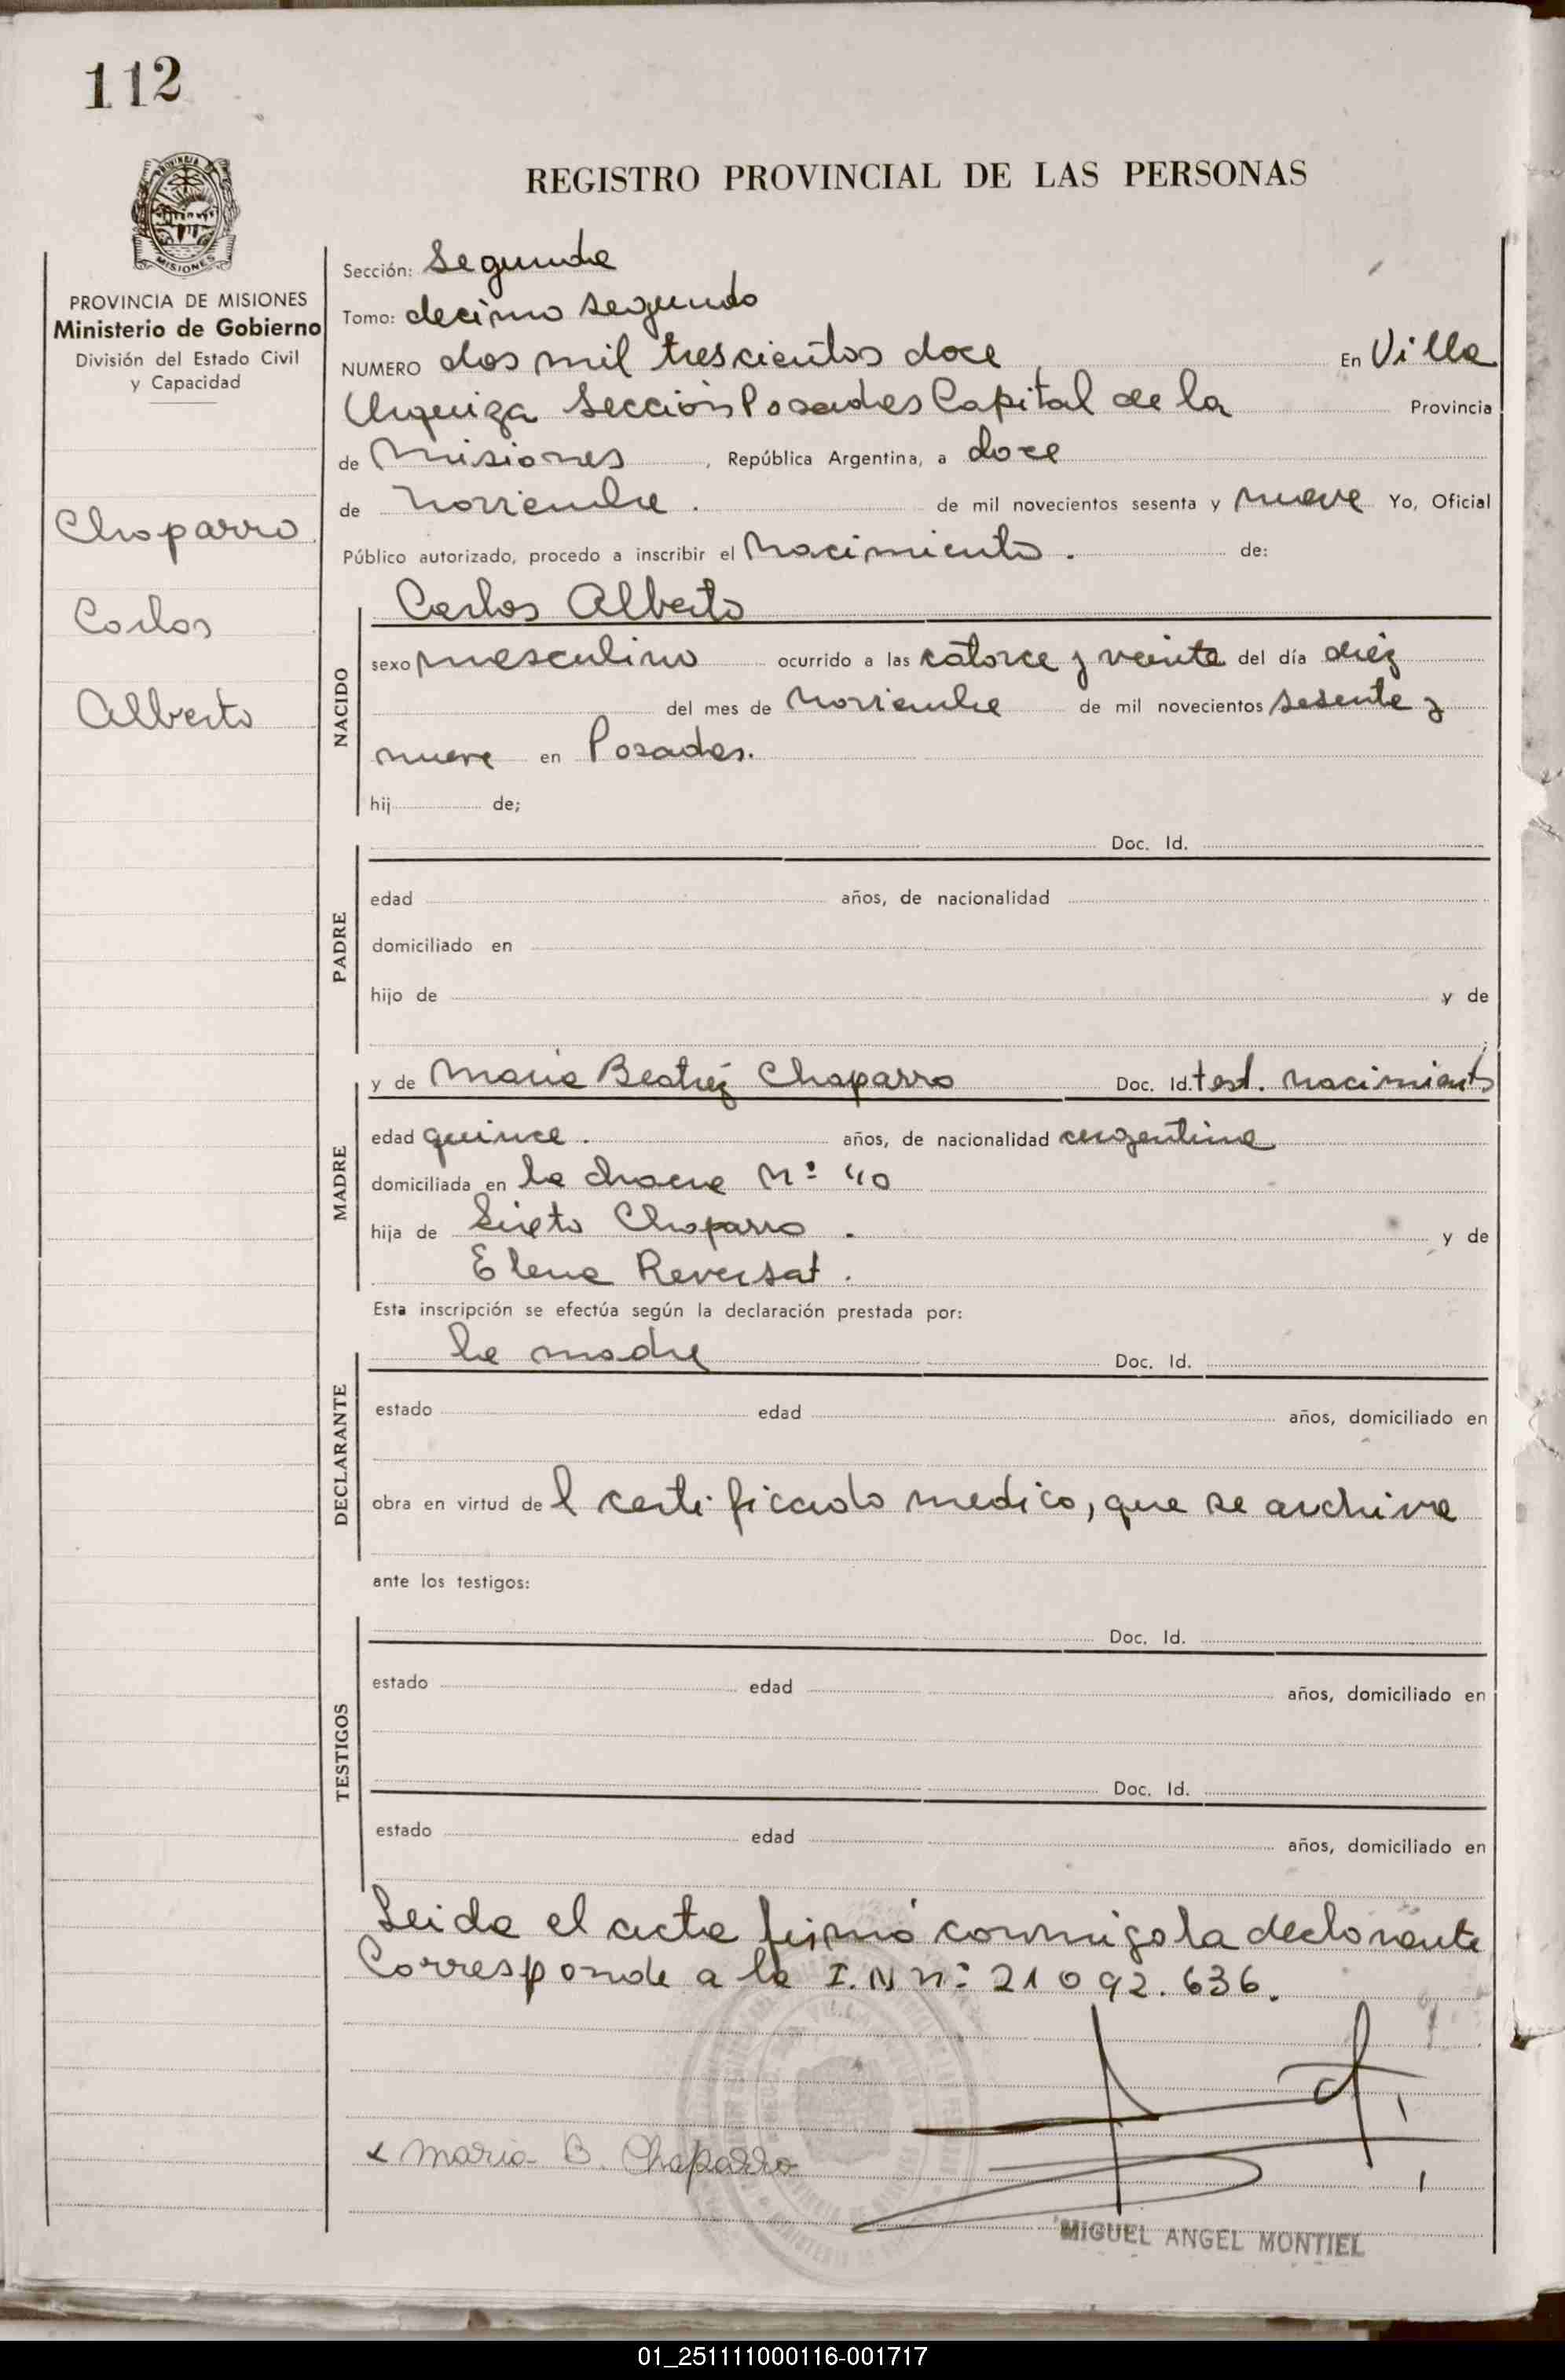 112
REGISTRO PROVINCIAL DE LAS PERSONAS
MISIONES
PROVINCIA DE MISIONES
Ministerio de Gobierno
División del Estado Civil
y Capacidad
Chaparro
Carlos
Alberto
Sección: Segunda
Tomo: decimo segundo
NUMERO dos mil trescientos doce En Villa
Urquiza Sección Posadas Capital de la Provincia
de Misiones, República Argentina, a doce
de noviembre. de mil novecientos sesenta y nueve Yo, Oficial
Público autorizado, procedo a inscribir el Nacimiento. de:
Carlos Alberto
NACIDO
sexo masculino ocurrido a las catorce y veinte del día diez
del mes de noviembre de mil novecientos sesenta y
nueve en Posadas.
hij de;
PADRE
Doc. Id.
edad años, de nacionalidad
domiciliado en
hijo de y de
MADRE
y de Maria Beatriz Chaparro Doc. Id. test. nacimiento
edad quince. años, de nacionalidad argentina
domiciliada en la chacra Nº 40
hija de Sixto Chaparro. y de
Elena Reversat.
Esta inscripción se efectúa según la declaración prestada por:
DECLARANTE
la madre Doc. Id.
estado edad años, domiciliado en
obra en virtud del certificado medico, que se archiva
ante los testigos:
TESTIGOS
Doc. Id.
estado edad años, domiciliado en
Doc. Id.
estado edad años, domiciliado en
Leida el acta firmó conmigo la declarante
Corresponde a la I.N nº 21 092.636.
x Maria B. Chaparro
MIGUEL ANGEL MONTIEL
01_251111000116-001717